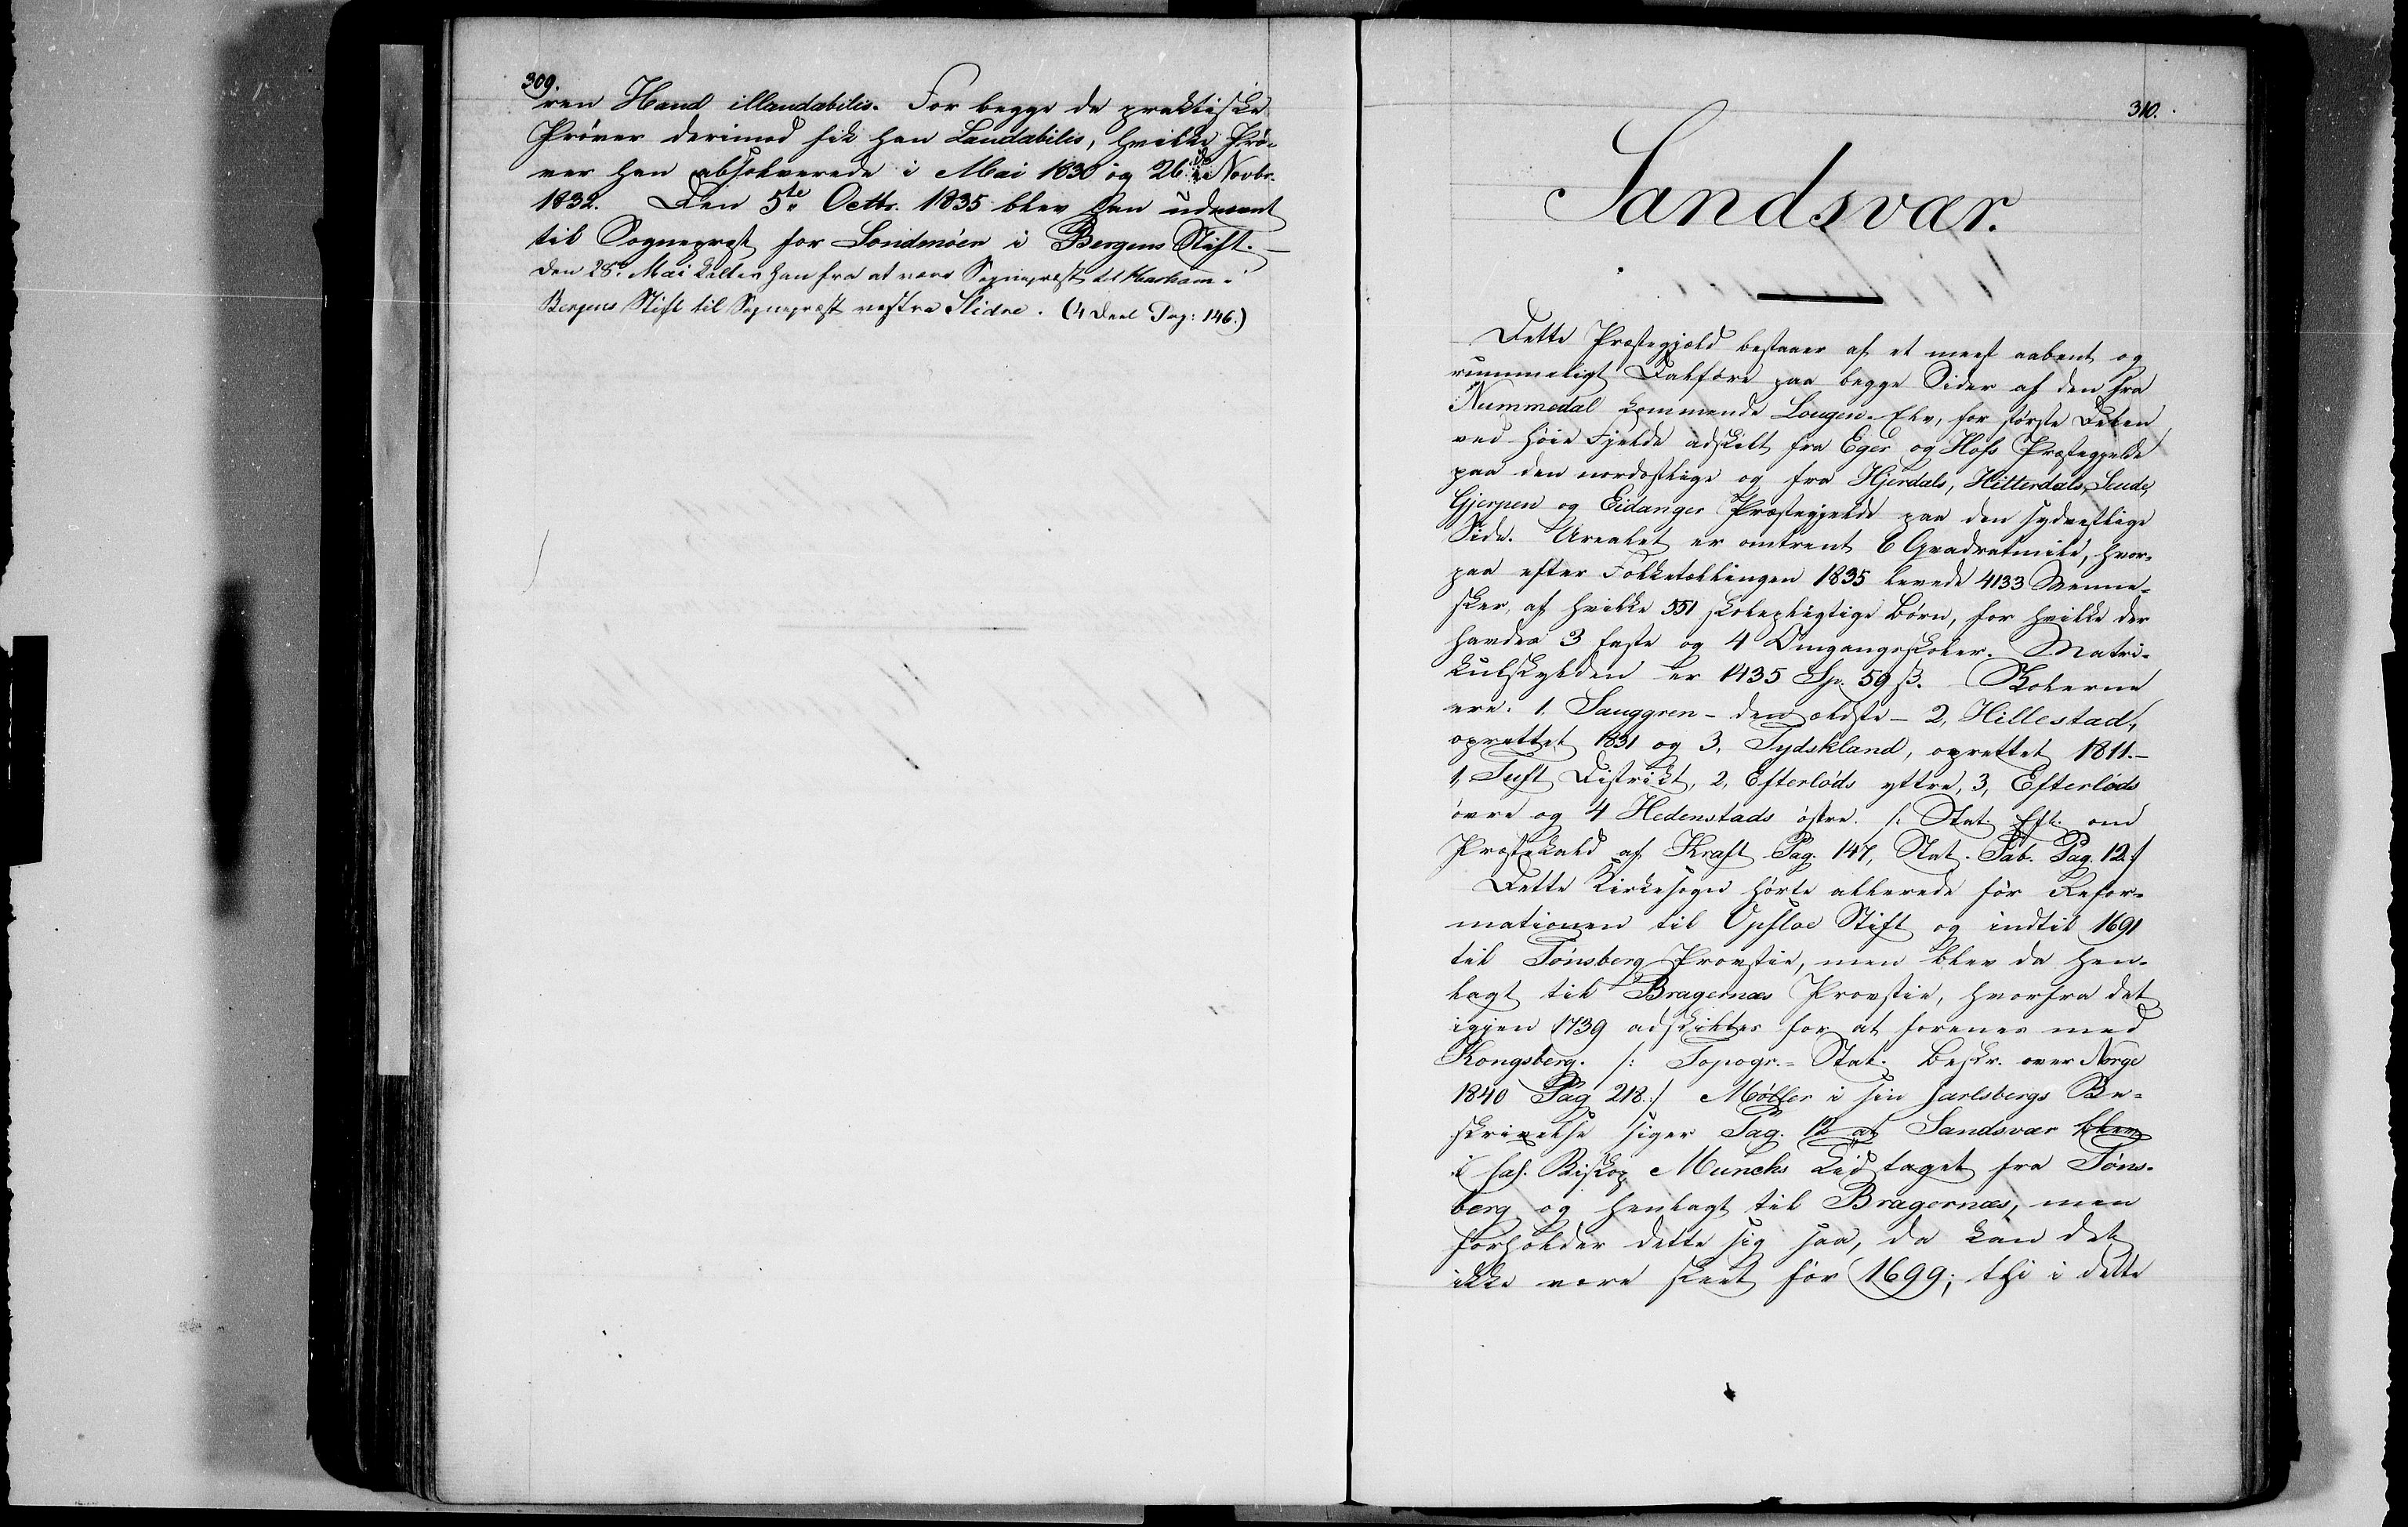 309.
ren Haud illaudabilis. For begge de praktiske
Prøver derimod fik han Laudabilis, hvilke Prø-
ver han absolverede i Mai 1830 og 26de Novbr.
1832. Den 5te Octbr. 1835 blev han udnævnt
til Sognepræst for Søndmøer i Bergens Stift. –
Den 28de Mai kaldes han fra at være Sognepræst til Harham i
Bergens Stift til Sognepræst vestre Slidre. (4 Deel Pag: 146.)
310.
Sandsvær.
Dette Præstegjæld bestaaer af et meest aabent og
rummeligt Dalføre paa begge Sider af den fra
Nummedal kommende Lougen-Elv, for største Delen
ved høie Fjelde adskilt fra Eger og Hofs Præstegjelde
paa den nordostlige og fra Hjerdals, Hitterdals, Seude,
Gjerpen og Eidanger Præstegjelde paa den sydvestlige
Side. Arealet er omtrent 6 Qvadratmile, hvor-
paa efter Folketællingen 1835 levede 4133 Menne-
sker, af hvilke 551 skolepligtige Børn, for hvilke der
havdes 3 faste og 4 Omgangsskoler. Matri-
kulskylden er 1435 Sp. 59 ß. Skolerne
ere: 1, Sauggren – den ældste – 2, Hillestad,
oprettet 1831 og 3, Tydskland, oprettet 1811. –
1, Tuft Distrikt, 2, Efterløds yttre, 3, Efterløds
øvre og 4 Hedenstads østre. /: Stat. Eft. om
Præstekald af Kraft Pag. 147, Stat. Tab. Pag. 12./
Dette Kirkesogn hørte allerede før Refor-
mationen til Opsloe Stift og indtil 1691
til Tønsberg Provstie, men blev da hen-
lagt til Bragernæs Provstie, hvorfra det
igjen 1739 adskiltes for at forenes med
Kongsberg. /: Topogr.-Stat. Beskr. over Norge
1840 Pag 218:/ Møller i sin Jarlsbergs Be-
skrivelse siger Pag. 12 at Sandsvær blev
i sal. Biskop Munchs Tid taget fra Tøns-
berg og henlagt til Bragernæs, men
forholder dette sig saa, da kan det
ikke være skeet før 1699; thi i dette